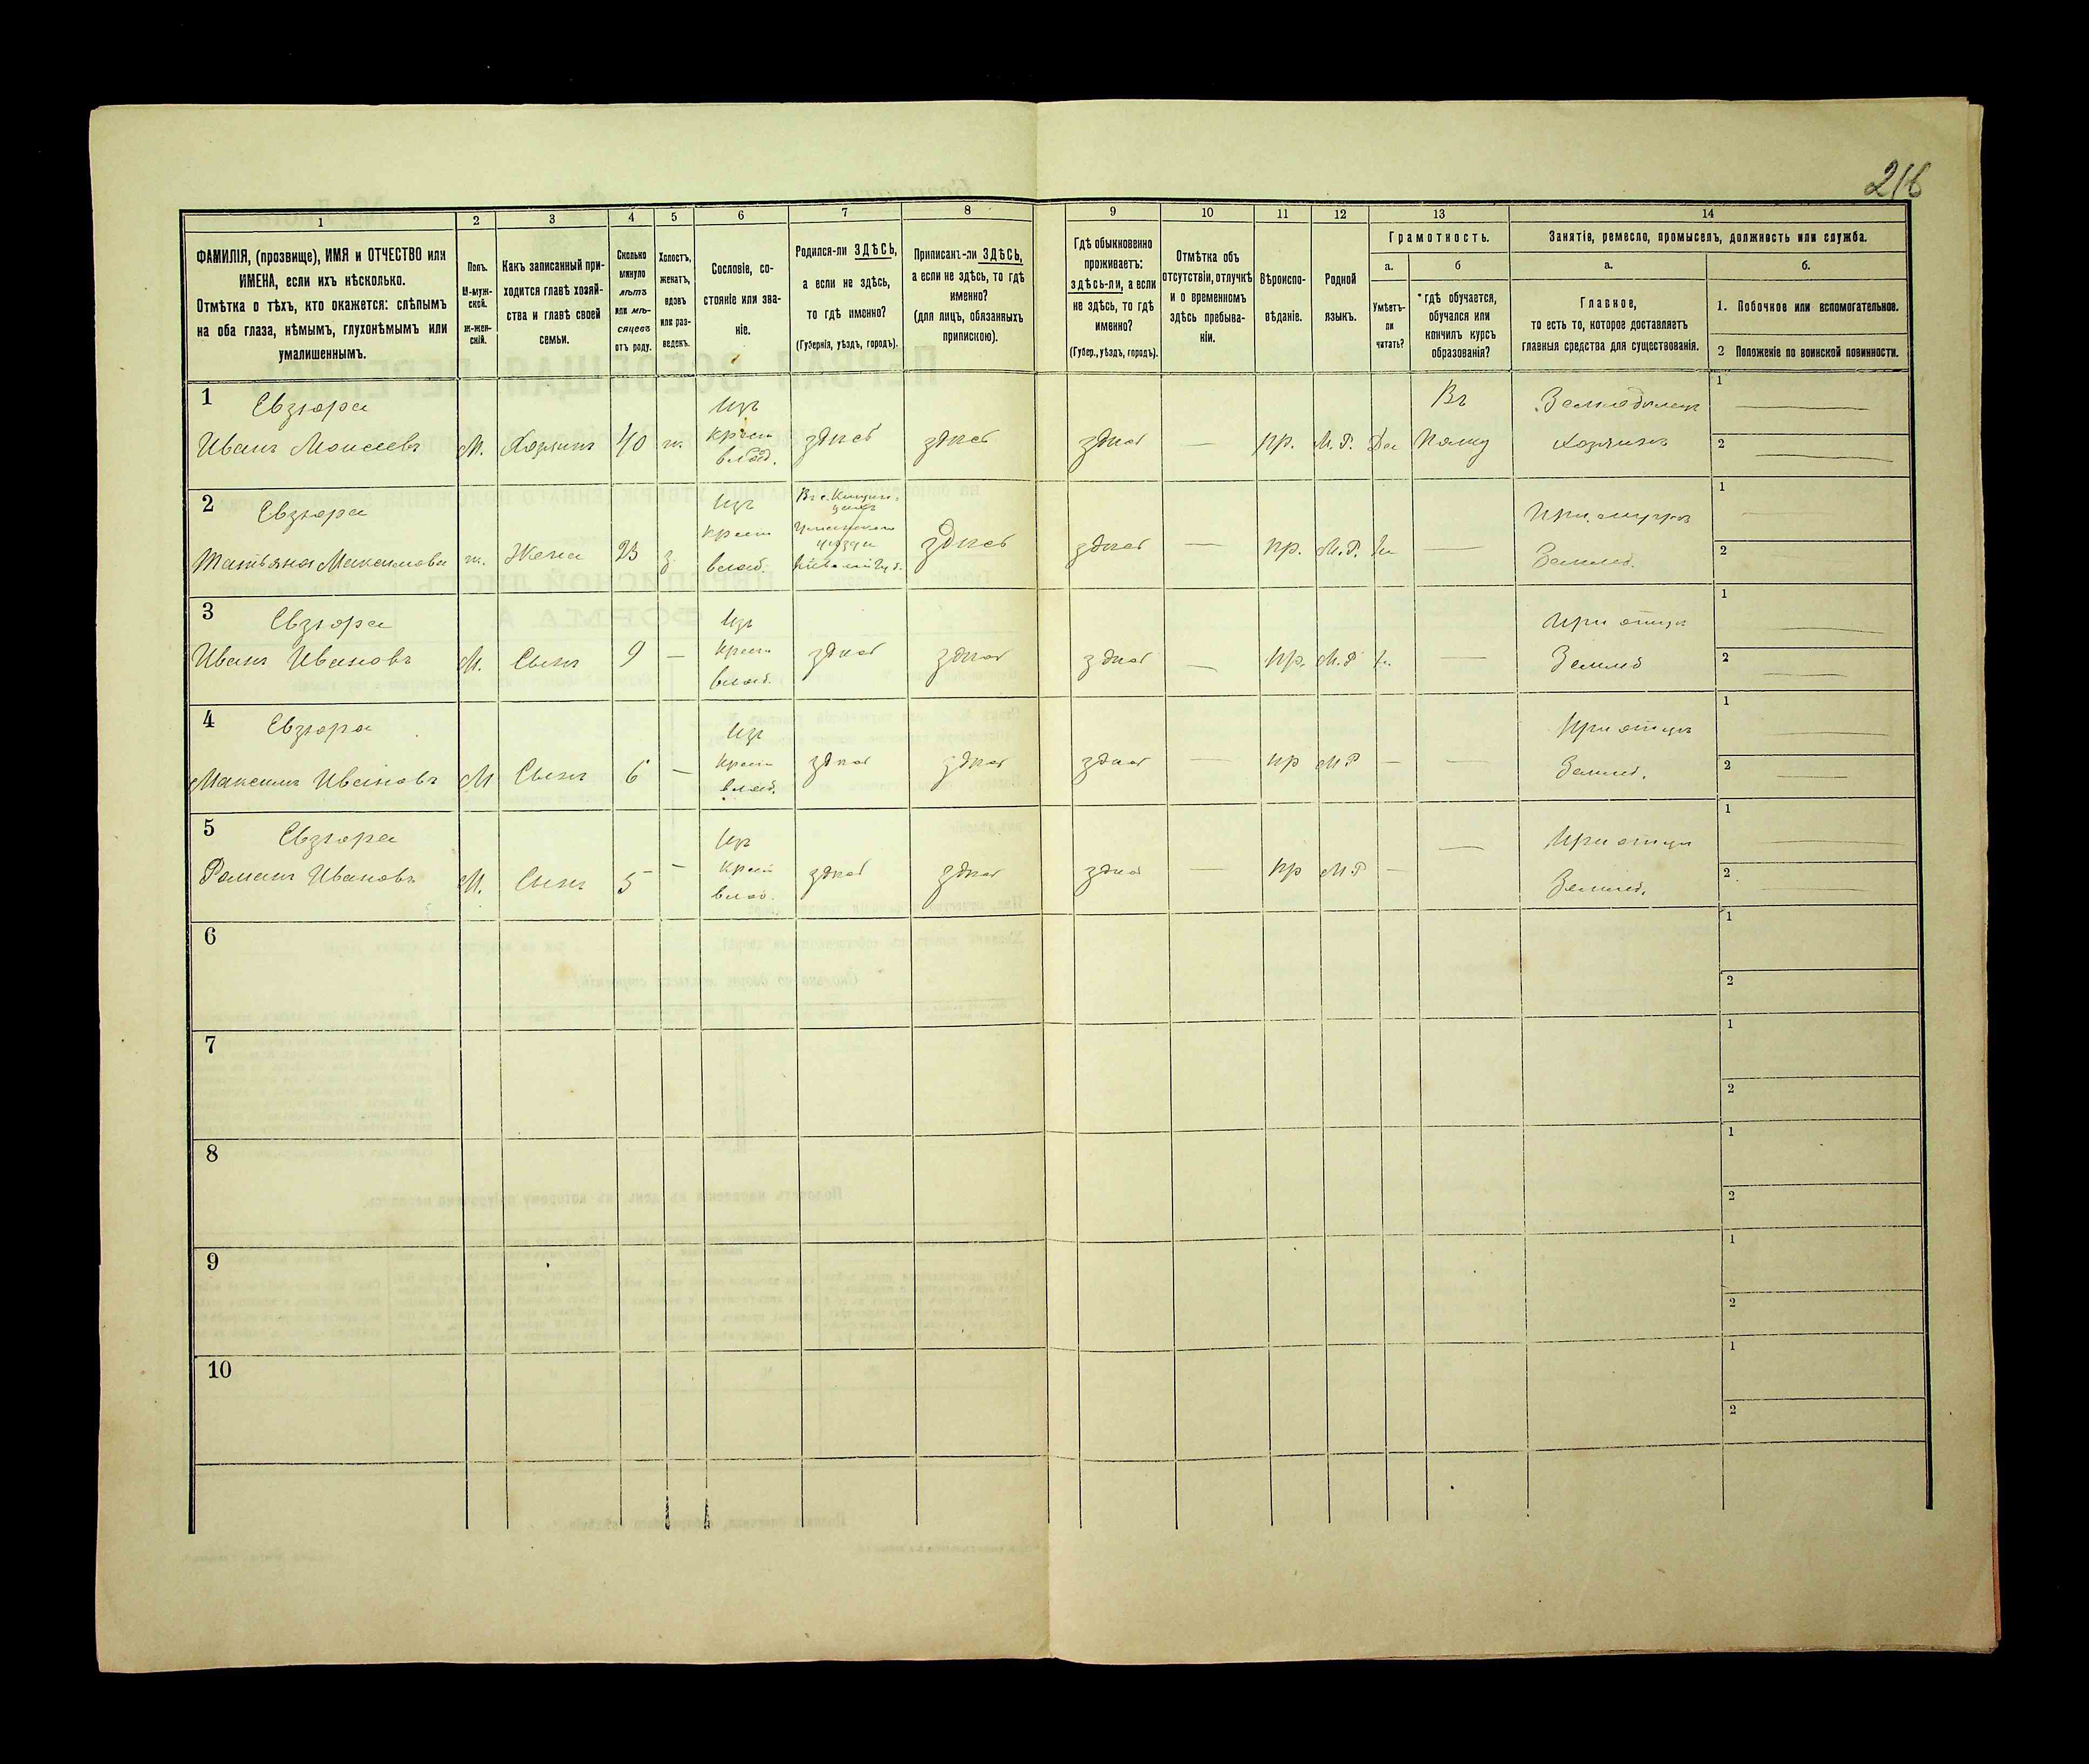 216
1 2 3 4 5 6 7 8 9 10 11 12 13 14
ФАМИЛІЯ, (прозвище), ИМЯ и ОТЧЕСТВО или
ИМЕНА, если ихъ нѣсколько.
Отмѣтка о тѣхъ, кто окажется: слѣпымъ
на оба глаза, нѣмымъ, глухонѣмымъ или
умалишеннымъ.
Полъ.
М-муж-
ской.
ж-жен-
скій.
Какъ записанный при-
ходится главѣ хозяй-
ства и главѣ своей
семьи.
Сколько
минуло
лѣтъ
или мѣ-
сяцевъ
отъ роду.
Холостъ,
женатъ,
вдовъ
или раз-
веденъ.
Сословіе, со-
стояніе или зва-
ніе.
Родился-ли ЗДѢСЬ,
а если не здѣсь,
то гдѣ именно?
(Губернія, уѣздъ, городъ).
Приписанъ-ли ЗДѢСЬ,
а если не здѣсь, то гдѣ
именно?
(для лицъ, обязанныхъ
припискою).
Гдѣ обыкновенно
проживаетъ:
здѣсь-ли, а если
не здѣсь, то гдѣ
именно?
(Губер., уѣздъ, городъ).
Отмѣтка объ
отсутствіи, отлучкѣ
и о временномъ
здѣсь пребыва-
ніи.
Вѣроиспо-
вѣданіе.
Родной
языкъ.
Грамотность.
а.
Умѣетъ-
ли
читать?
б
гдѣ обучается,
обучался или
кончилъ курсъ
образованія?
Занятія, ремесло, промыселъ, должность или служба.
а.
Главное,
то есть то, которое доставляетъ
главныя средства для существованія.
б.
1. Побочное или вспомогательное.
2 Положеніе по воинской повинности.
1 Евзюра
Иванъ Моисеевъ М. Хозяинъ 40 ж.
изъ
крест
влад.
здѣсь здѣсь здѣсь — пр. М.Р. Да
Въ
Полку
Земледѣлецъ
хозяинъ
1 —
2 —
2 Евзюра
Татьяна Максимова ж. Жена 23 з.
изъ
крест
влад.
Уманскаго
уѣзда
здѣсь здѣсь — пр. М.Р. —
Землед.
1 —
2 —
3 Евзюра
Иванъ Ивановъ М. Сынъ 9 —
изъ
крест
влад.
здѣсь здѣсь здѣсь — пр. М.Р —
при отцѣ
Землед
1 —
2 —
4 Евзюра
Максимъ Ивановъ М Сынъ 6 —
изъ
крест
влад.
здѣсь здѣсь здѣсь — пр М Р — —
при отцѣ
Землед.
1 —
2 —
5 Евзюра
Романъ Ивановъ М. Сынъ 5 —
изъ
крест
влад.
здѣсь здѣсь здѣсь — пр М Р — —
при отцѣ
Землед.
1 —
2 —
6 1
2
7 1
2
8 1
2
9 1
2
10 1
2